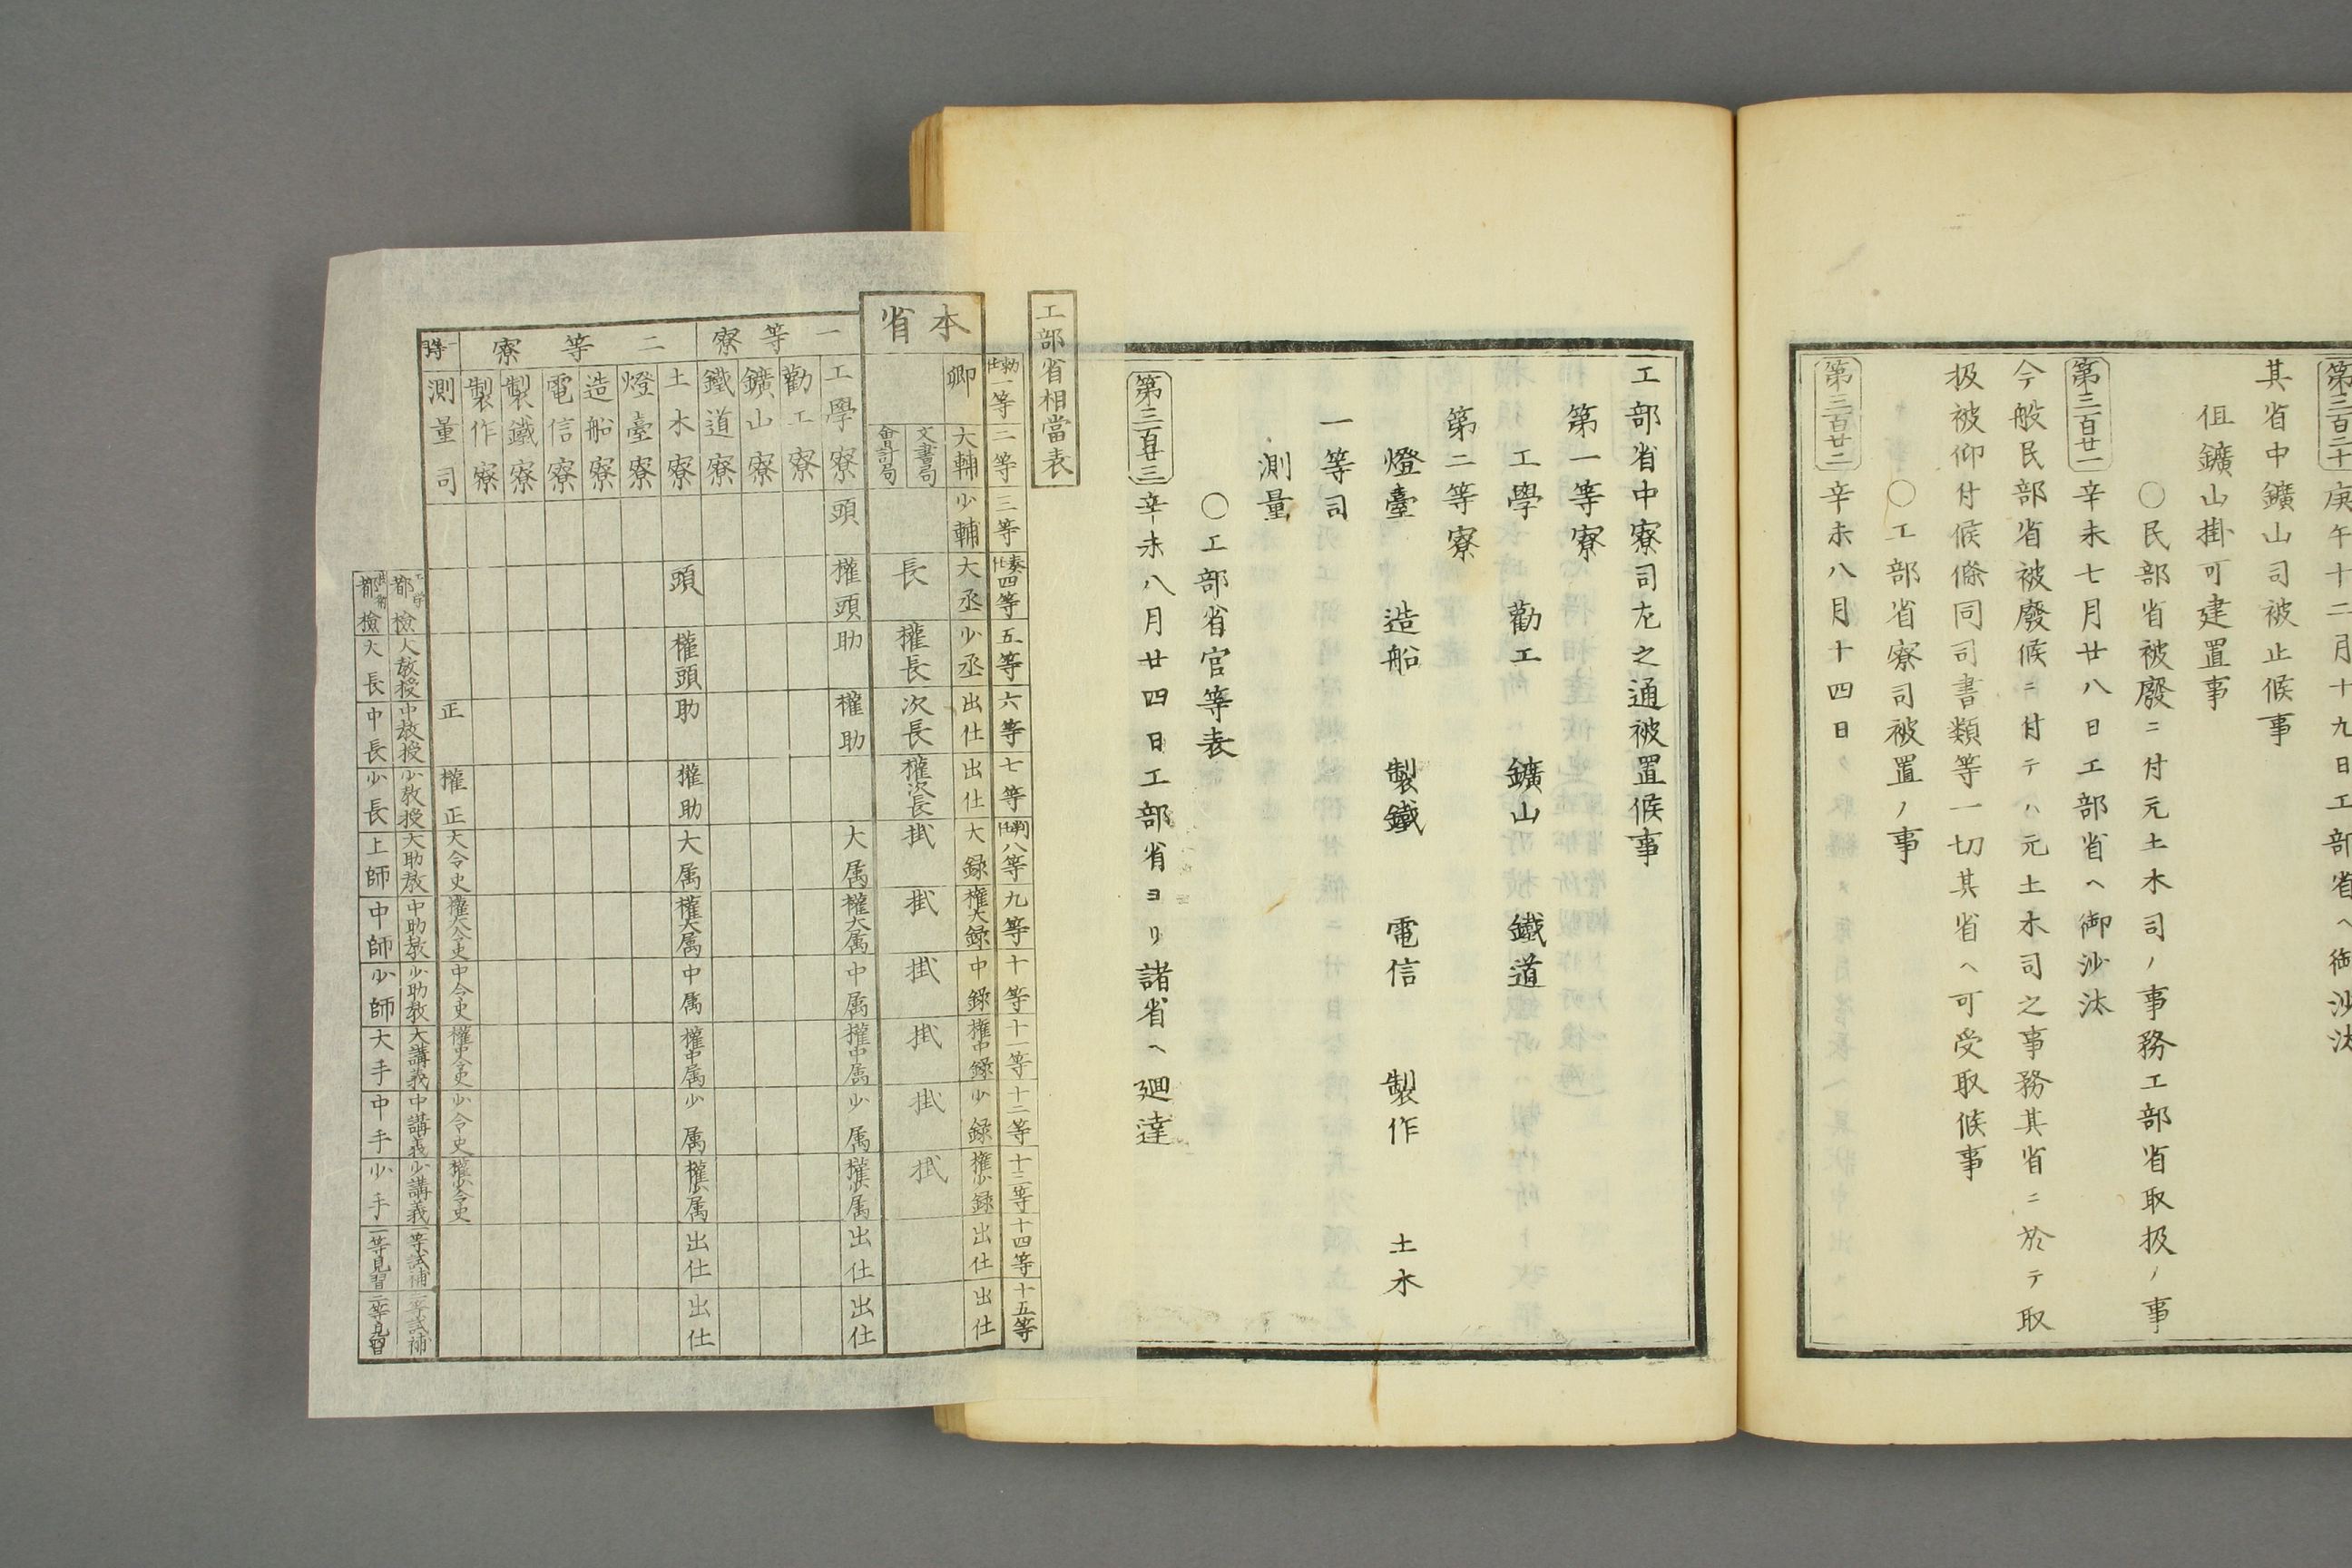 第三百二十庚午十二月十九日工部省ヘ御沙汰
其省中鑛山司被止候事
伹鑛山掛可建置事
〇民部省被廢ニ付元土木司ノ事務工部省取扱ノ事
第三百廿一辛未七月廿八日工部省ヘ御沙汰
今般民部省被廢候ニ付テハ元土木司之事務其省ニ於テ取
扱被仰付候條同司書類等一切其省ヘ可受取候事
〇工部省寮司被置ノ事
第三百廿二辛未八月十四日
工部省中寮司左之通被置候事
第一等寮
工學 勸工 鑛山 鐵道
第二等寮
燈臺 造船 製鐵 電信 製作 土木
一等司
測量
〇工部省官等表
第三百廿三辛未八月廿四日工部省ヨリ諸省ヘ廻達
工部省相當表
勅任一等 二等 三等 奏任四等 五等 六等 七等 判任八等 九等 十等 十一等 十二等 十三等 十四等 十五等
本省
卿 大輔 少輔 大丞 少丞 出仕 出仕 大録 權大録 中録 權中録 少録 權少録 出仕 出仕
文書局
會計局
長 權長 次長 權次長 掛 掛 掛 掛 掛 掛
一等寮
工學寮 頭 權頭 助 權助 大属 權大属 中属 權中属 少属 權少属 出仕 出仕
勸工寮
鑛山寮
鐵道寮
二等寮
土木寮 頭 權頭 助 權助 大属 權大属 中属 權中属 少属 權少属 出仕 出仕
燈臺寮
造船寮
電信寮
製鐵寮
製作寮
一等司
測量司 正 權正 大令史 權大令史 中令史 權中令史 少令史 權少令史
都檢 大教授 中教授 少教授 大助教 中助教 少助教 大講義 中講義 少講義 一等試補 二等試補
都檢 大長 中長 少長 上師 中師 少師 大手 中手 少手 一等見習 二等見習